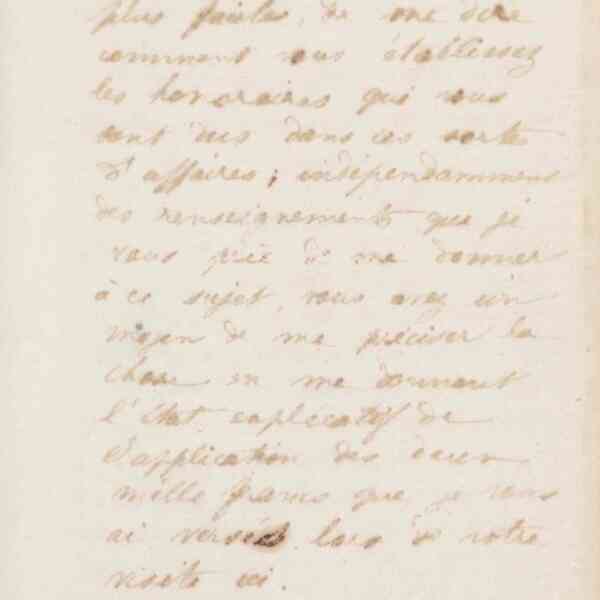 plus faibles, de me dire
comment vous établissez
les honoraires qui vous
sont dus dans ces sortes
d'affaires ; indépendamment
des renseignements que je
vous prie de me donner
à ce sujet, vous avez un
moyen de me préciser la
chose en me donnant
l'état explicatif de
l'application des deux
mille francs que je vous
ai versés lors de votre
visite ici.